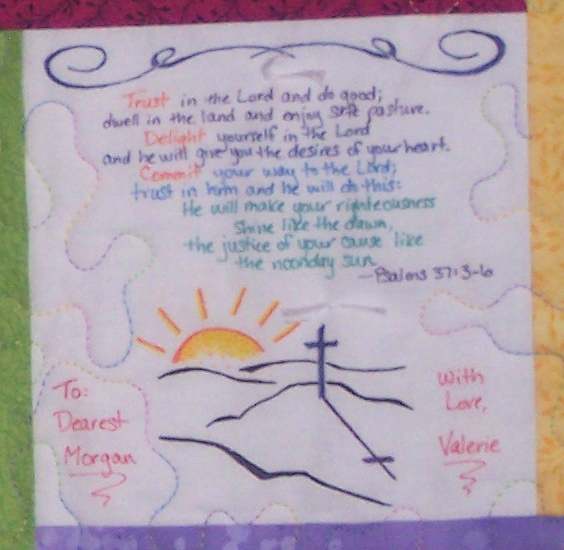 Trust in the Lord and do good;
dwell in the land and enjoy safe pasture.
Delight yourself in the Lord
and he will give you the desires of your heart.
Commit your way to the Lord;
trust in him and he will do this:
He will make your righteousness
shine like the dawn,
the justice of your cause like
the noonday sun.
—Psalms 37:3-6
To:
Dearest
Morgan
With
Love,
Valerie